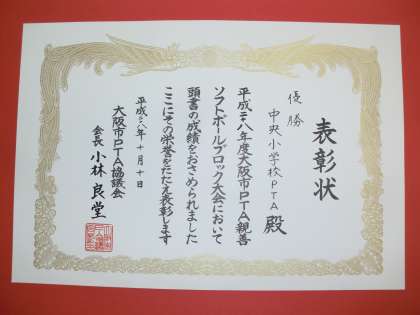 表彰状
優勝
中央小学校PTA 殿
平成二八年度大阪市PTA親善
ソフトボールブロック大会において
頭書の成績をおさめられました
ここにその栄誉をたたえ表彰します
平成二八年十月十日
大阪市PTA協議会
会長 小林良堂